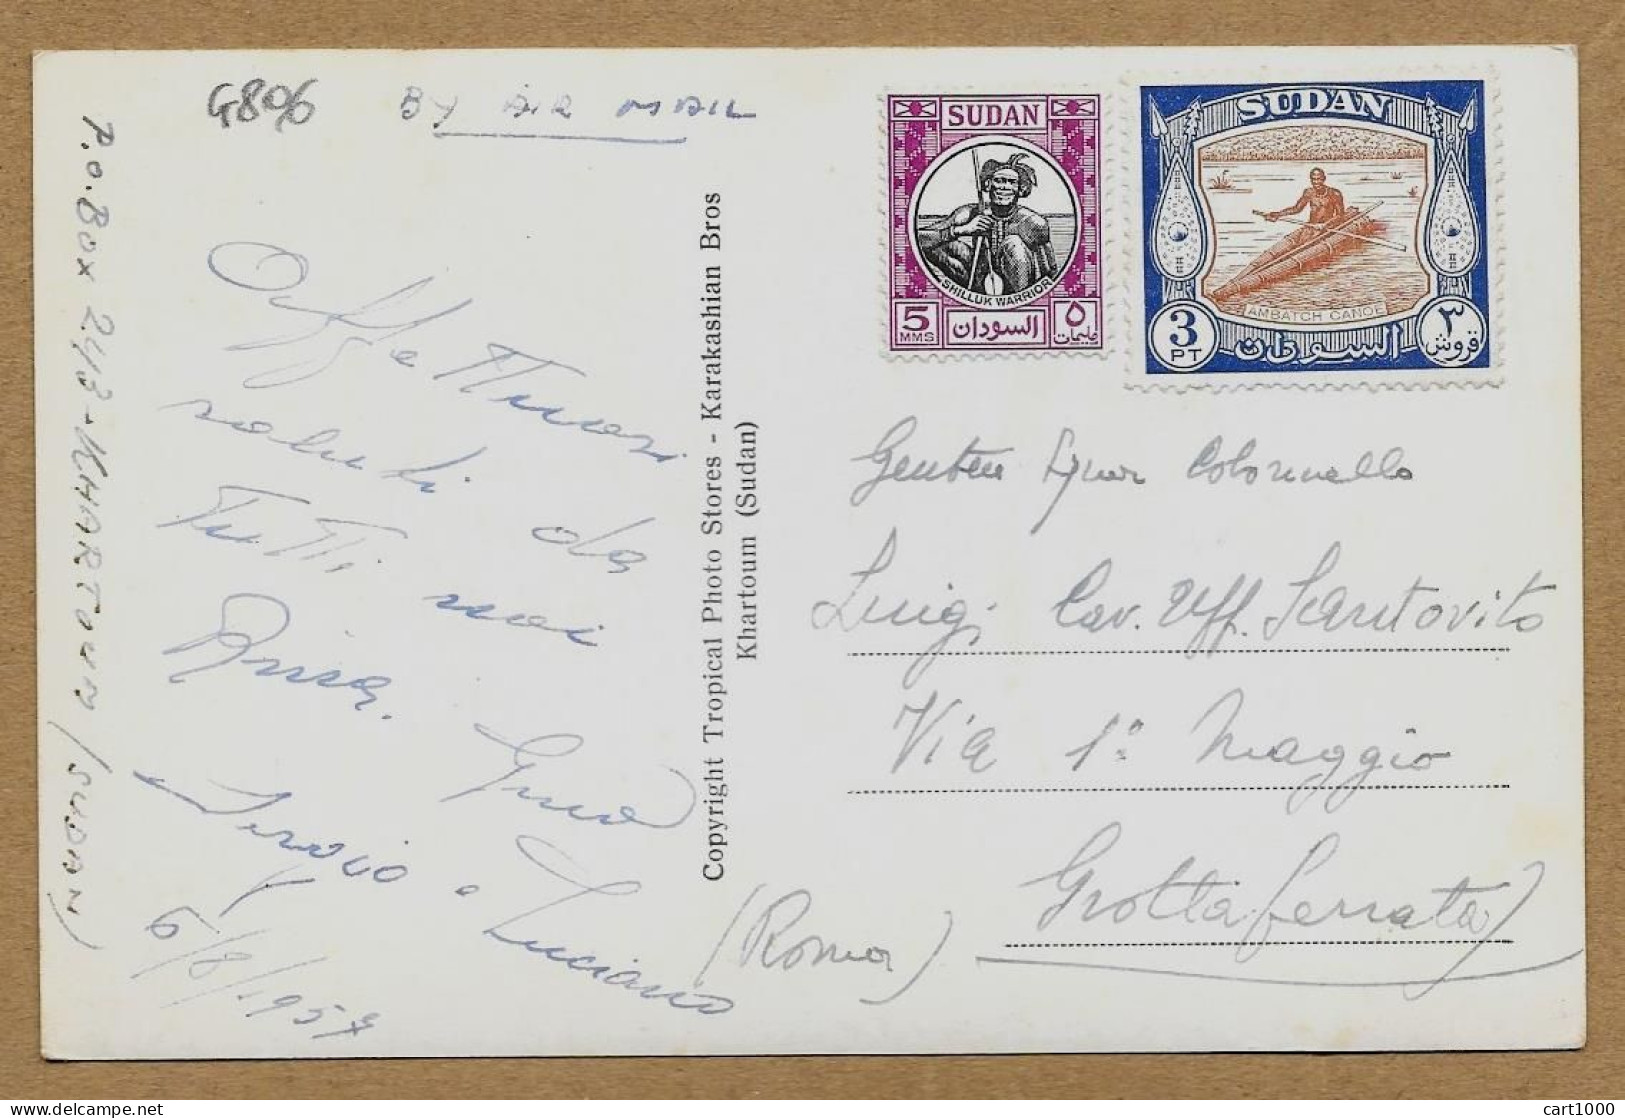 G806
BY AIR MAIL
P.O. BOX 243 - KHARTOUM (SUDAN)
Affettuosi
saluti da
Tutti noi
Luciano
6/8/1957
Copyright Tropical Photo Stores - Karakashian Bros
Khartoum (Sudan)
SUDAN
SHILLUK WARRIOR
5 MMS
السودان
٥ مليمات
SUDAN
AMBATCH CANOE
3 PT
السودان
٣ قروش
Signor Colonnello
Luigi Cav. Uff. Santovito
Via 1° Maggio
Grottaferrata
(Roma)
cart1000